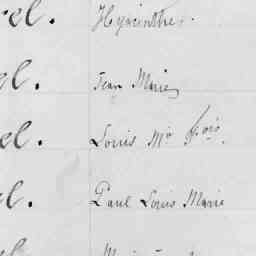 rel. Hyacinthe.
el. Jean Marie
el. Louis Mie fois
el. Paul Louis Marie